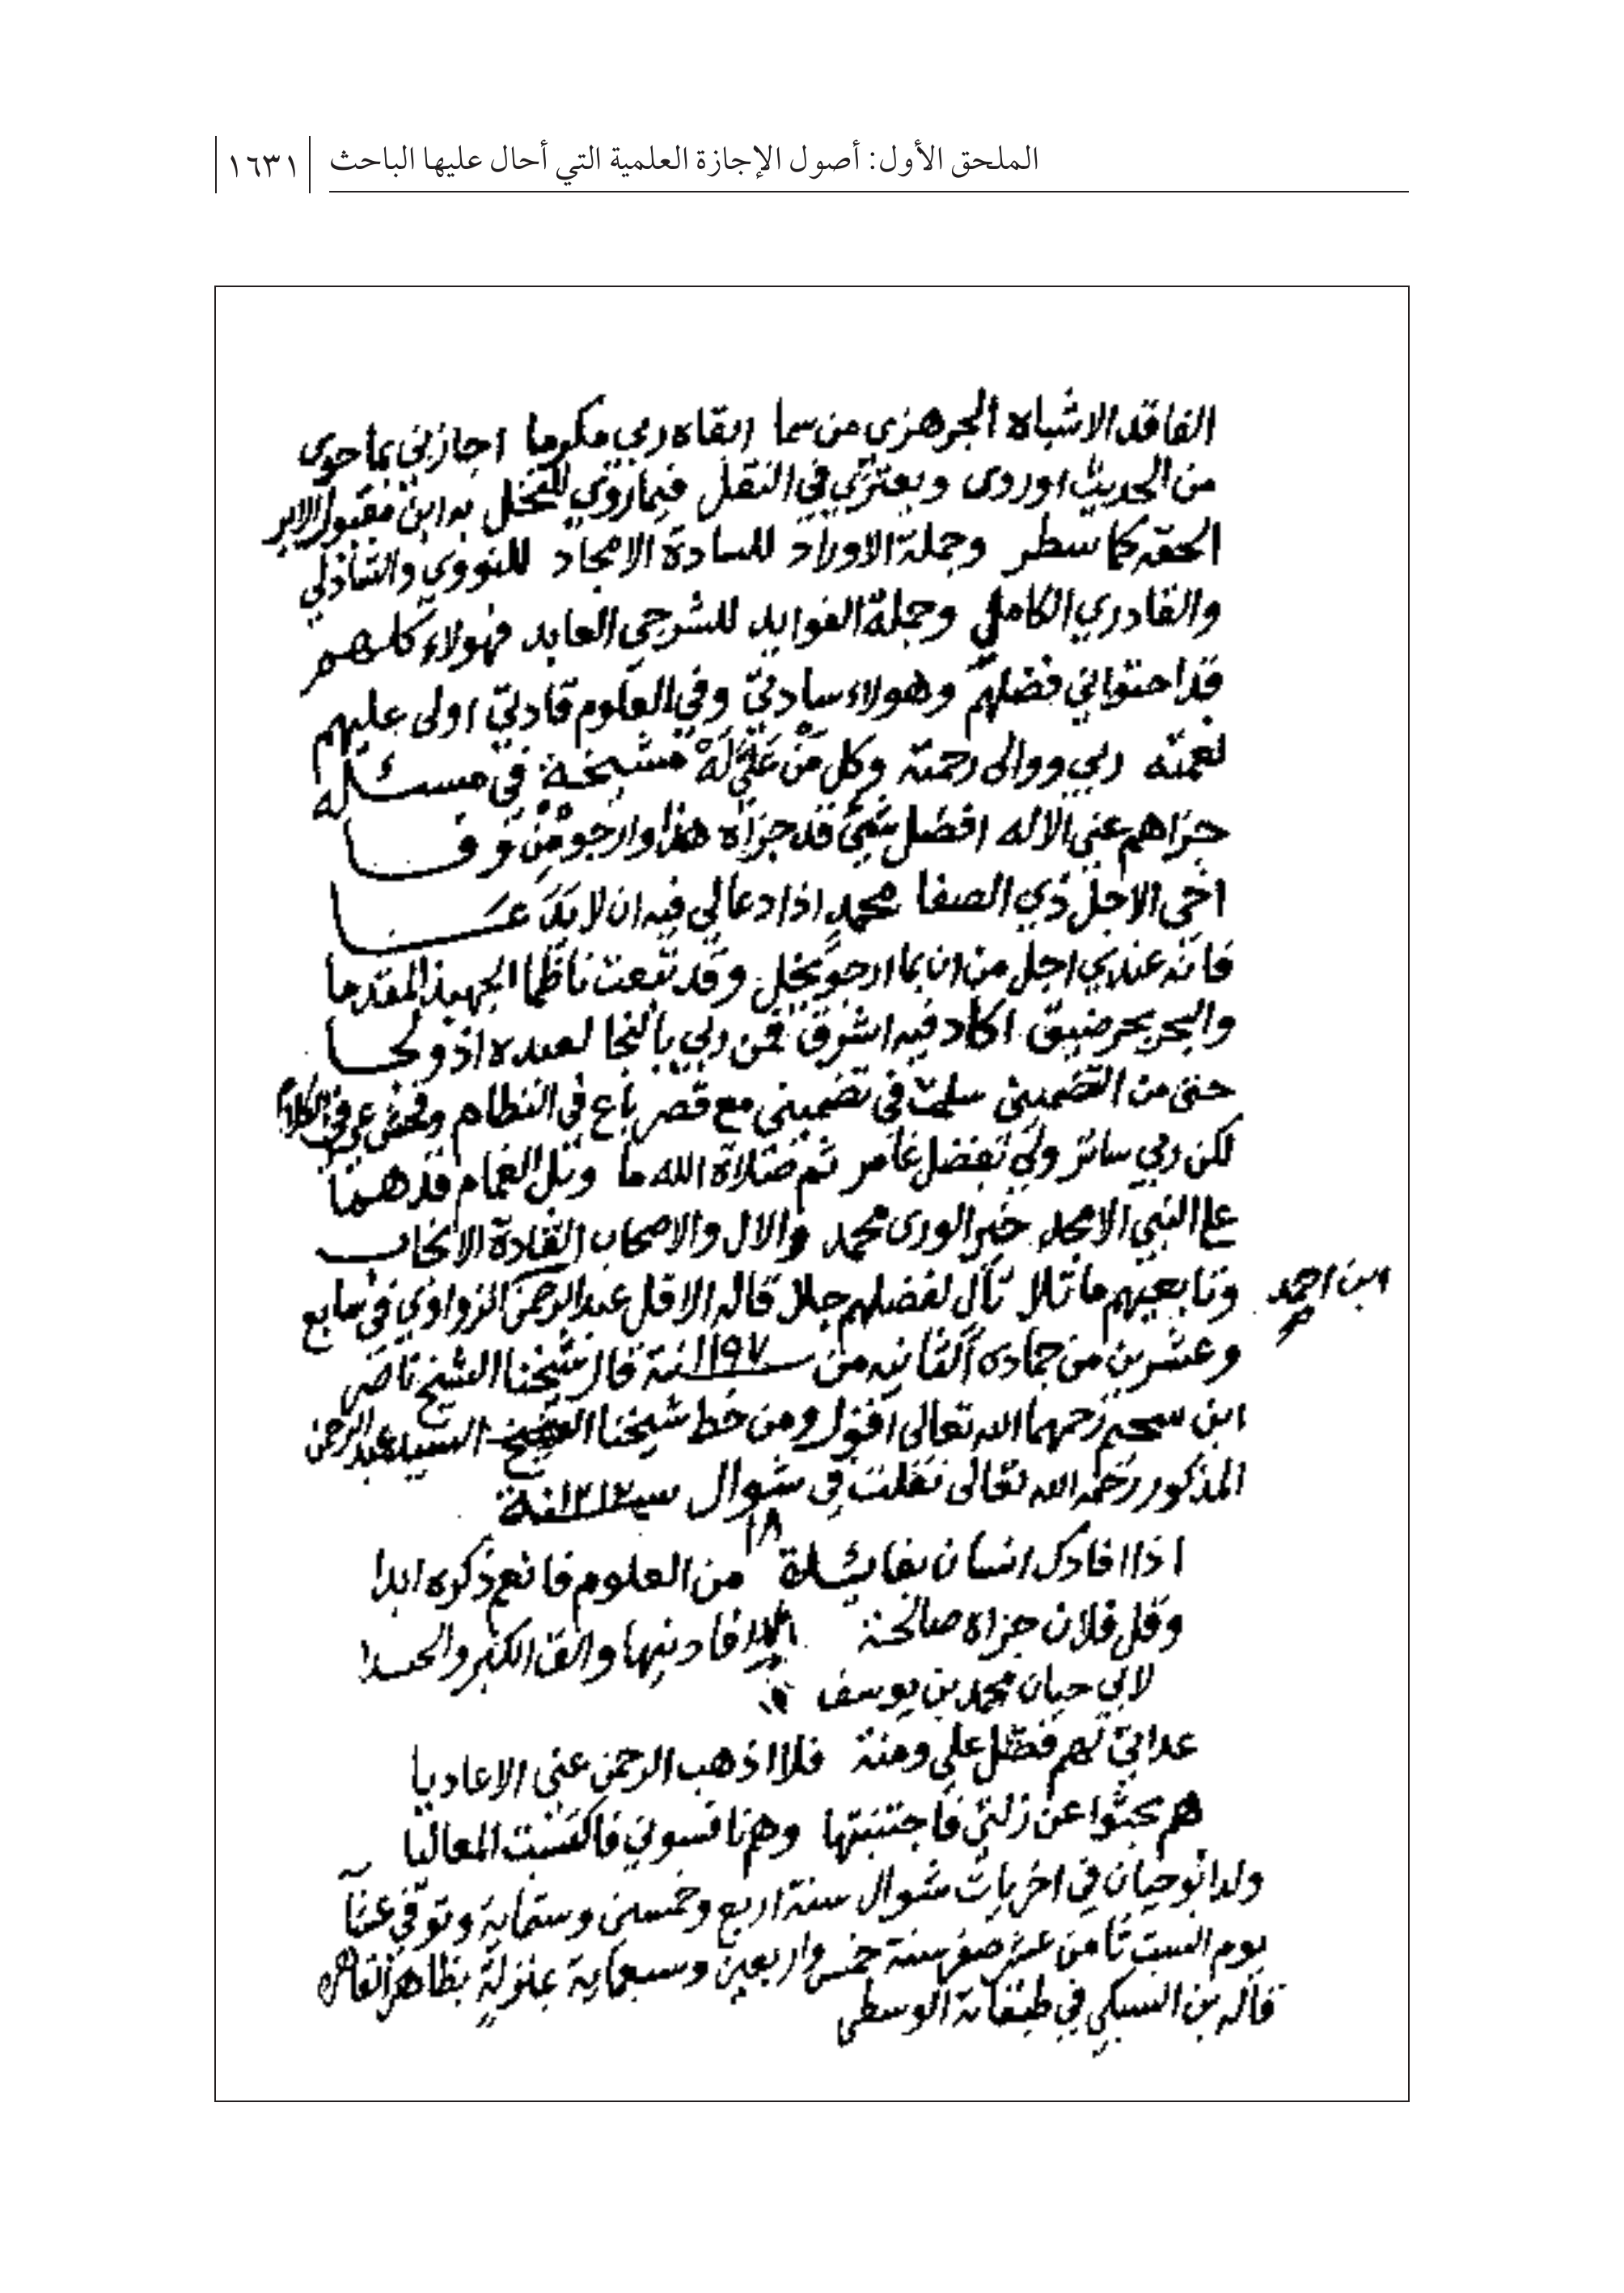 الملحق الأول: أصول الإجازة العلمية التي أحال عليها الباحث
١٦٣١
الفاقد الاشباه الجرهزي من سما ابقاه ربي مكرما اجازني بما حوى
من الحديث اوروى وبعتزي في النقل فيما روي للنخل به ابن مقبول الابر
الحقه كما سطر وجملة الاوراد للسادة الامجاد للنووي والشاذلي
والقادري الكاملي وجملة الفوايد للشرجي العابد فهولاء كلهم
قد احتواني فضلهم وهولاء ساداتي وفي العلوم قادتي اولى عليهم
نعمته ربي ووالى رحمته وكل من علي له مشيخة في مسئله
جزاهم عني الاله افضل شيئ قد جزاه هذا وارجو من وفا
اخي الاجل ذي الصفا محمد اذا دعا لي فيه ان لا
فانه عندي اجل من ان بما ارجو يخل وقد تبعت ناظما الجهبذ المقدما
والبحر بحر ضيق اكاد فيه اشرق فمن ربي بالنجا لعبده اذ ولجا
حتى من التضمين سلمت في تضميني مع قصر باع في النظام وفحش عي في الكلام
لكن ربي ساتر ولي بفضل غامر ثم صلاة الله ما وبل الغمام قد هما
على النبي الامجد خير الورى محمد والال والاصحاب القادة الانجاب
وتابعيهم ما تلا تال لفضلهم جلا قاله الاقل عبد الرحمن الزواوي في سابع
ابن احمد
صح
وعشرين من جماده الثانيه من سنة ١١٩٧ قال شيخنا الشيخ ناصر
ابن سحيم رحمهما الله تعالى اقول ومن خط شيخنا السيد عبد الرحمن
المذكور رحمه الله تعالى نقلت في شوال سنة ١٢١٢
١٨
اذا افادك انسان بفائدة من العلوم فانع ذكره ابدا
وقل فلان جزاه صالحة افادنيها والق الكبر والحسدا
لابي حيان محمد بن يوسف
عداتي لهم فضل علي ومنة فلا اذهب الرحمن عني الاعاديا
هم بحثوا عن زلتي فاجتنبتها وهم نافسوني فاكتسبت المعاليا
ولد ابو حيان في اخريات شوال سنة اربع وخمسين وستماية وتوفي
يوم السبت ثامن عشر صفر سنة خمس واربعين وسبعماية بمنزله بظاهر القاهره
قاله بن السبكي في طبقاته الوسطى